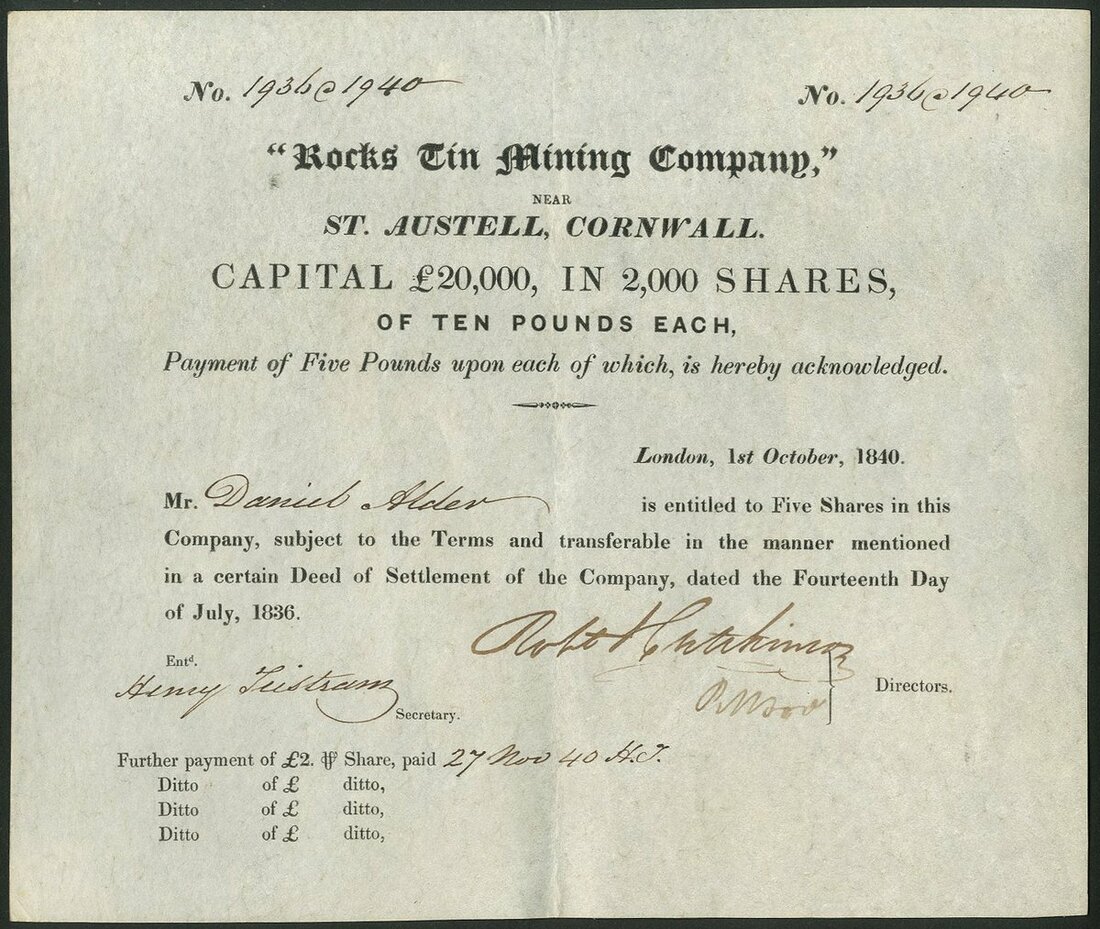 No. 1936 @ 1940 No. 1936 @ 1940
"Rocks Tin Mining Company,"
NEAR
ST. AUSTELL, CORNWALL.
CAPITAL £20,000, IN 2,000 SHARES,
OF TEN POUNDS EACH,
Payment of Five Pounds upon each of which, is hereby acknowledged.
London, 1st October, 1840.
Mr. Daniel Alder is entitled to Five Shares in this
Company, subject to the Terms and transferable in the manner mentioned
in a certain Deed of Settlement of the Company, dated the Fourteenth Day
of July, 1836.
Robt Hutchinson
Entd.
Henry Tristram
Secretary.
Directors.
Further payment of £2. ⅌ Share, paid 27 Nov 40 H.T.
Ditto of £ ditto,
Ditto of £ ditto,
Ditto of £ ditto,